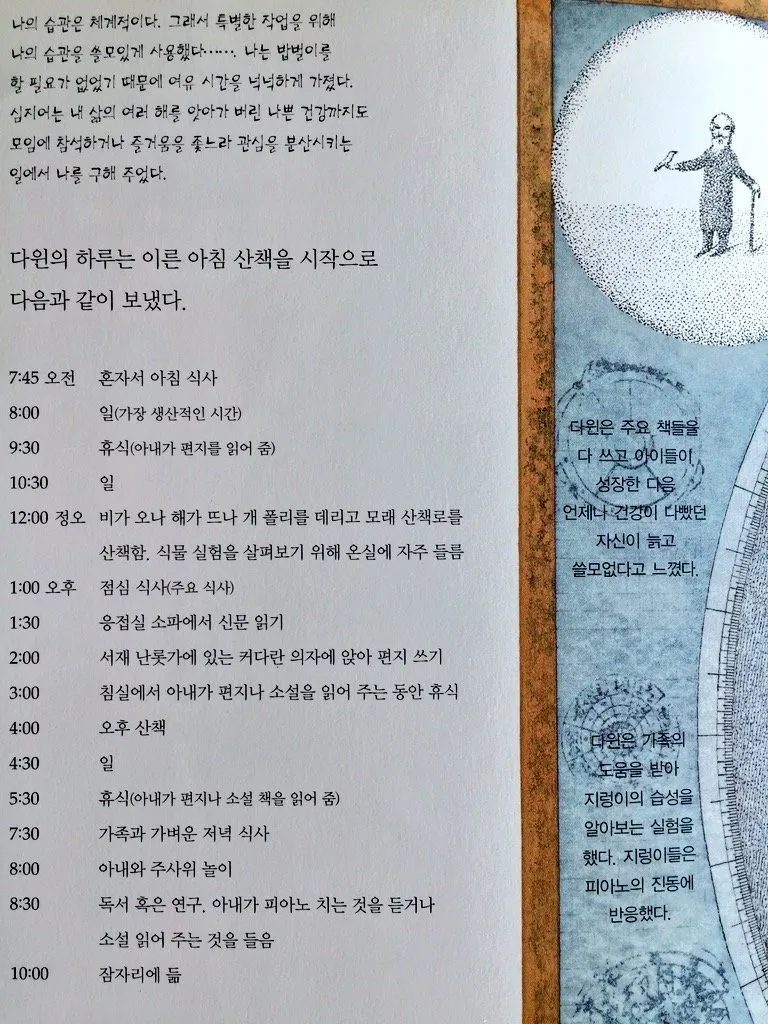 나의 습관은 체계적이다. 그래서 특별한 작업을 위해
나의 습관을 쓸모있게 사용했다……. 나는 밥벌이를
할 필요가 없었기 때문에 여유 시간을 넉넉하게 가졌다.
심지어는 내 삶의 여러 해를 앗아가 버린 나쁜 건강까지도
모임에 참석하거나 즐거움을 좇느라 관심을 분산시키는
일에서 나를 구해 주었다.
다윈의 하루는 이른 아침 산책을 시작으로
다음과 같이 보냈다.
7:45 오전 혼자서 아침 식사
8:00 일(가장 생산적인 시간)
9:30 휴식(아내가 편지를 읽어 줌)
10:30 일
12:00 정오 비가 오나 해가 뜨나 개 폴리를 데리고 모래 산책로를
산책함. 식물 실험을 살펴보기 위해 온실에 자주 들름
1:00 오후 점심 식사(주요 식사)
1:30 응접실 소파에서 신문 읽기
2:00 서재 난롯가에 있는 커다란 의자에 앉아 편지 쓰기
3:00 침실에서 아내가 편지나 소설을 읽어 주는 동안 휴식
4:00 오후 산책
4:30 일
5:30 휴식(아내가 편지나 소설 책을 읽어 줌)
7:30 가족과 가벼운 저녁 식사
8:00 아내와 주사위 놀이
8:30 독서 혹은 연구. 아내가 피아노 치는 것을 듣거나
소설 읽어 주는 것을 들음
10:00 잠자리에 듦
다윈은 주요 책들을
다 쓰고 아이들이
성장한 다음
언제나 건강이 나빴던
자신이 늙고
쓸모없다고 느꼈다.
다윈은 가족의
도움을 받아
지렁이의 습성을
알아보는 실험을
했다. 지렁이들은
피아노의 진동에
반응했다.